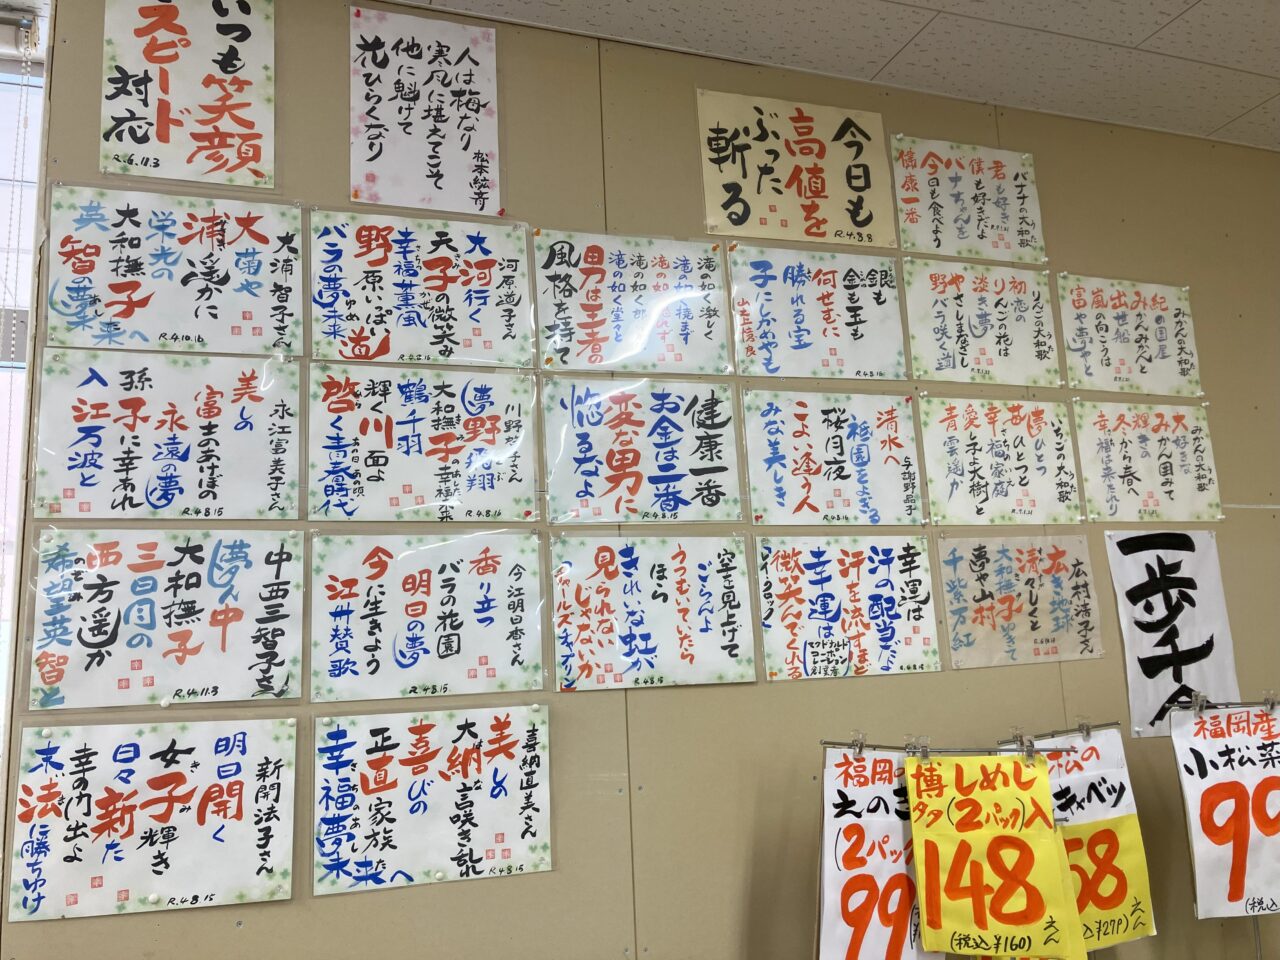 いつも笑顔
スピード
対応
R.6.11.3
人は梅なり
寒風に堪えてこそ
他に魁けて
花ひらくなり
今日も
高値を
ぶった
斬る
R.4.8.8
バナナの大和歌
君も好き
僕も好きだよ
バナナちゃんを
今日も食べよう
健康一番
R.7.1.21
大浦智子さん
大菊や
浦遥かに
栄光の
大和撫子
英智の夢未来へ
R.4.10.16
河原道子さん
大河行く
天子の微笑み
幸福薫風
野原いっぱい道
バラの夢未来
滝の如く激しく
滝の如く
滝の如く
滝の如く堂々と
男は王者の
風格を持て
銀も
金も玉も
何せむに
勝れる宝
子にしかめやも
山上憶良
R.4.8.16
りんごの大和歌
初恋の
りんごの花は
淡き夢
やさしまなざし
野バラ咲く道
R.7.1.21
みかんの大和歌
紀の国屋
みかんみかんと
出世船
嵐の向こうは
富や夢やと
R.7.1.21
永江富美子さん
美しの
富士のあけぼの
永遠の夢
孫子に幸あれ
入江万波と
R.4.8.15
夢野飛翔
大和撫子の
鶴千羽
輝く川面よ
啓く青春時代
R.4.8.16
健康一番
お金は二番
変な男に
惚るなよ
R.4.8.15
与謝野晶子
清水へ
祇園をよぎる
桜月夜
こよい逢う人
みな美しき
R.4.8.16
いちごの大和歌
夢ひとつ
苺ひとつと
幸福家庭
愛し子よ大樹と
青雲遥か
R.7.1.21
みかんの大和歌
大好きな
みかん国みて
輝きの
冬から春へ
幸福は来たり
R.7.1.21
中西三智子さん
夢ん中
大和撫子
三日月の
西方遥か
希望英智と
R.4.11.3
今江明日香さん
香り立つ
バラの花園
明日の夢
今に生きよう
江川賛歌
R.4.8.15
空を見上げて
ごらんよ
うつむいていたら
ほら
きれいな虹が
見られない
じゃないか
チャールズ・チャップリン
R.4.8.15
幸運は
汗の配当だよ
汗を流すほど
幸運は
微笑んでくれる
レイ・クロック
マクドナルド
コーポレーション
創業者
R.4.8.15
広村清子さん
広き地球
清々しくと
大和撫子
夢や山村
千紫万紅
一歩千金
新開法子さん
明日開く
女子輝き
日々新た
幸の門出よ
末法に勝ちゆけ
R.4.8.15
喜納直美さん
美しの
大納言咲き乱れ
喜びの
正直家族
幸福夢未来へ
R.4.8.15
福岡の
えのき
(2パック
99
博多
しめじ
(2パック)入
148えん
(税込¥160)
松の
キャベツ
58
¥279)
えん
福岡産
小松菜
99
(税込